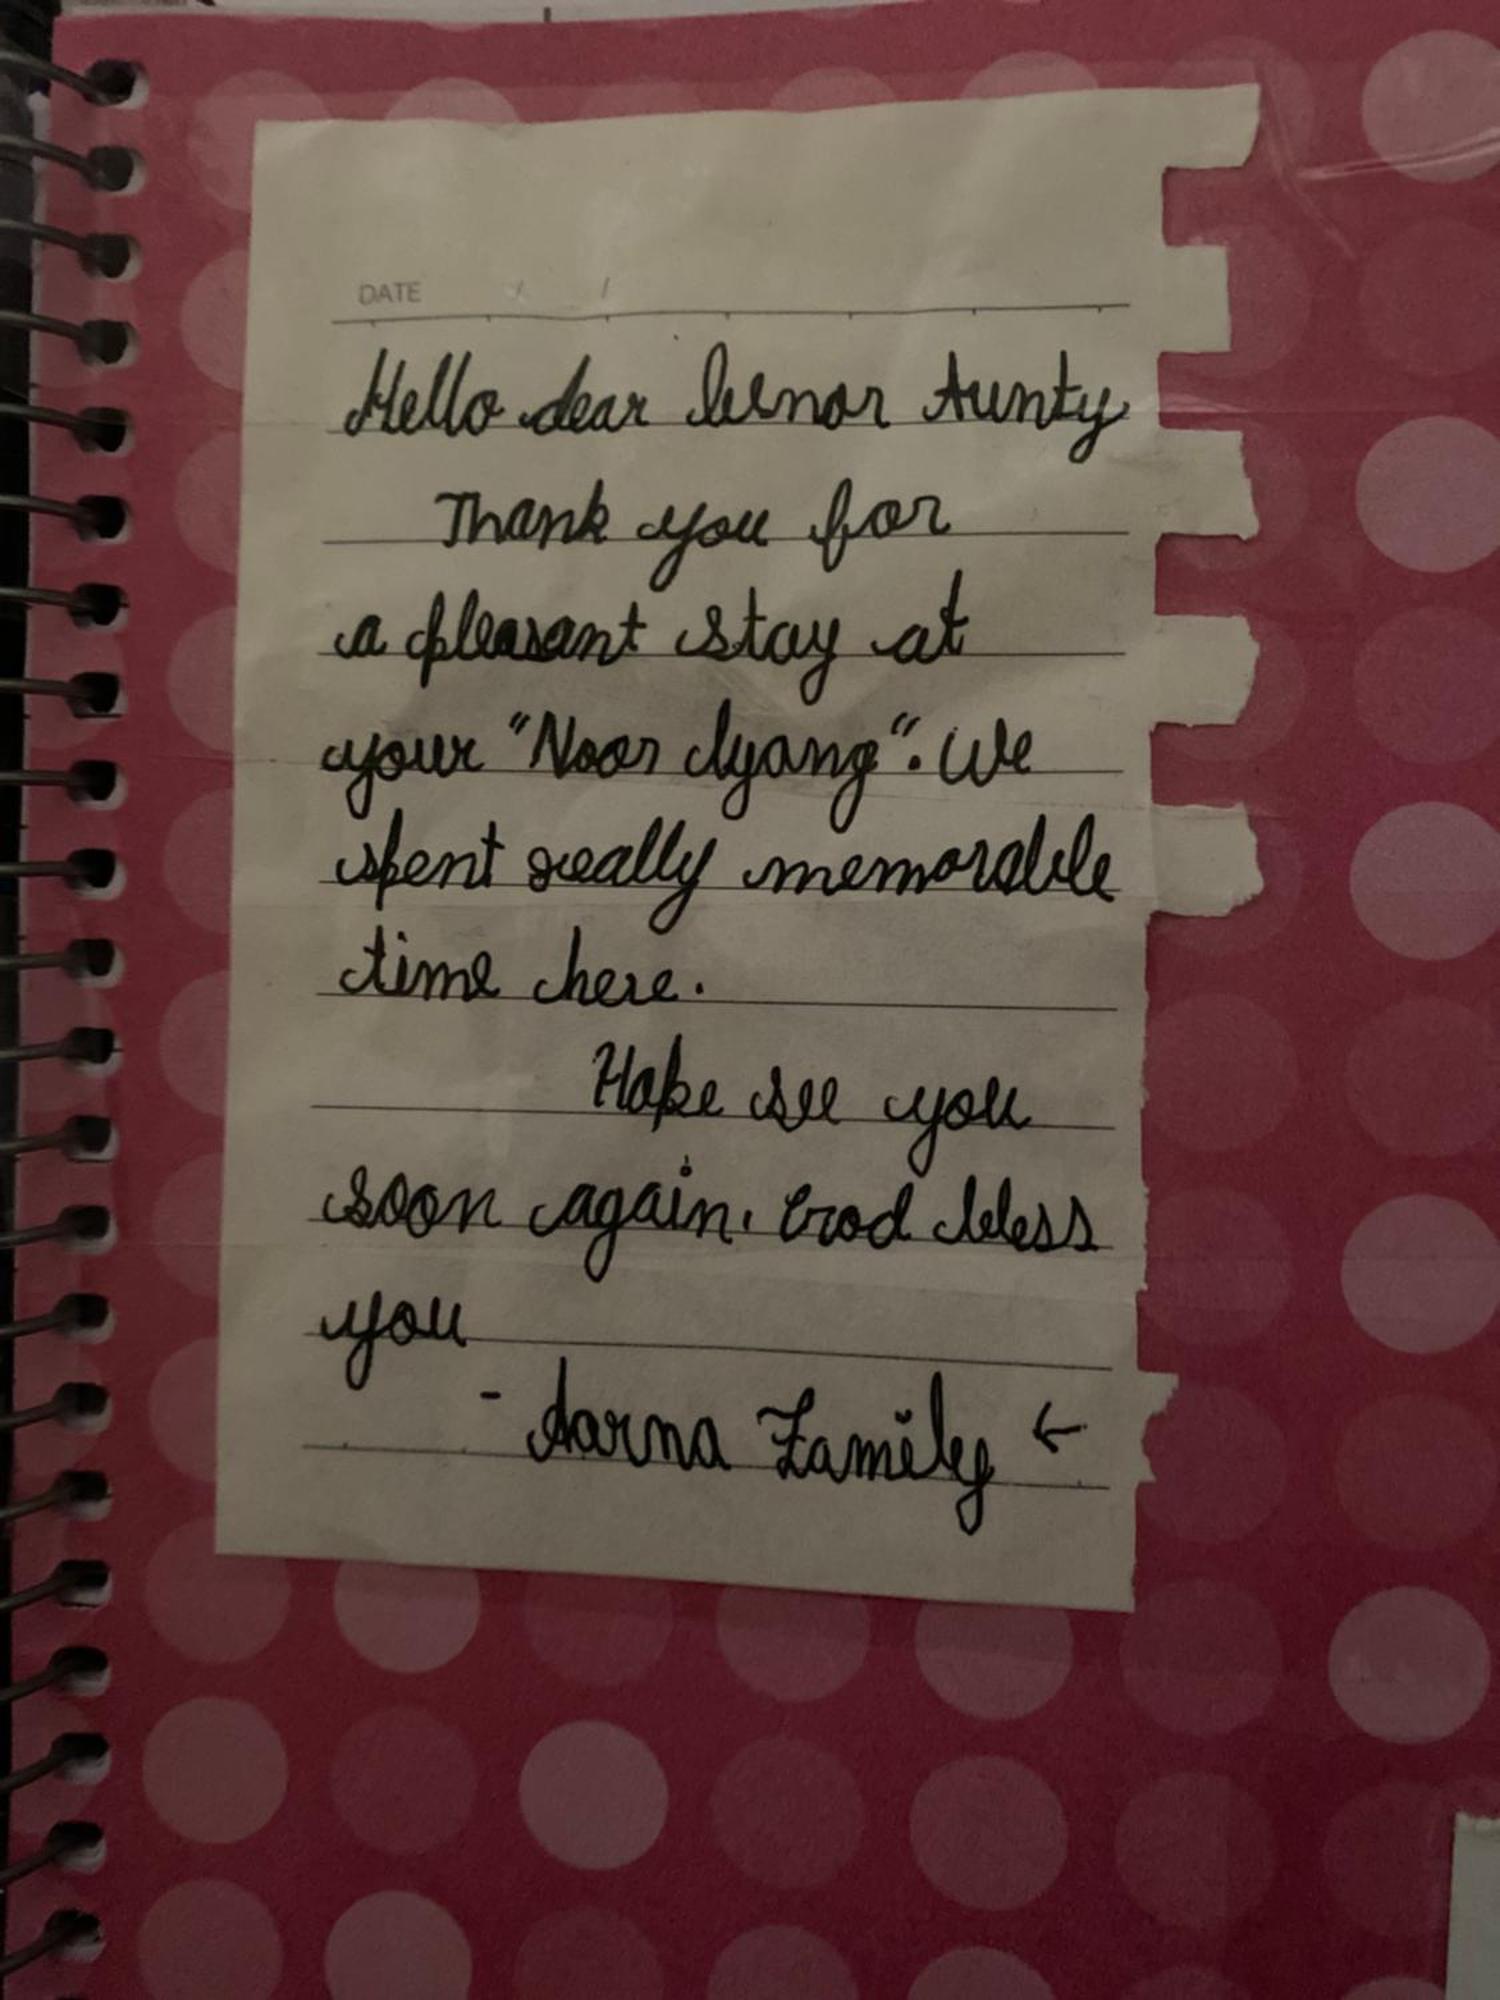 DATE / /
Hello dear Aunty
Thank you for
a pleasant stay at
your "Noor dyang". We
spent really memorable
time here.
Hope see you
soon again. God bless
you
- Aarna Family ←